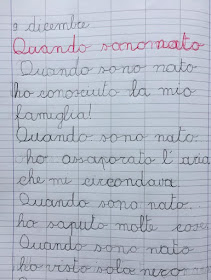 9 dicembre
Quando sono nato
Quando sono nato
ho conosciuto la mia
famiglia!
Quando sono nato.
ho assaporato l'aria
che mi circondava.
Quando sono nato.
ho saputo molte cose
Quando sono nato
ho visto solo nero